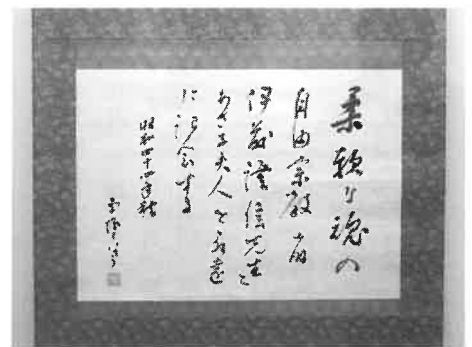 柔軟な魂の
自由宗教者
伊藤證信先生と
あさ子夫人を永遠
に記念する
昭和四十四年秋